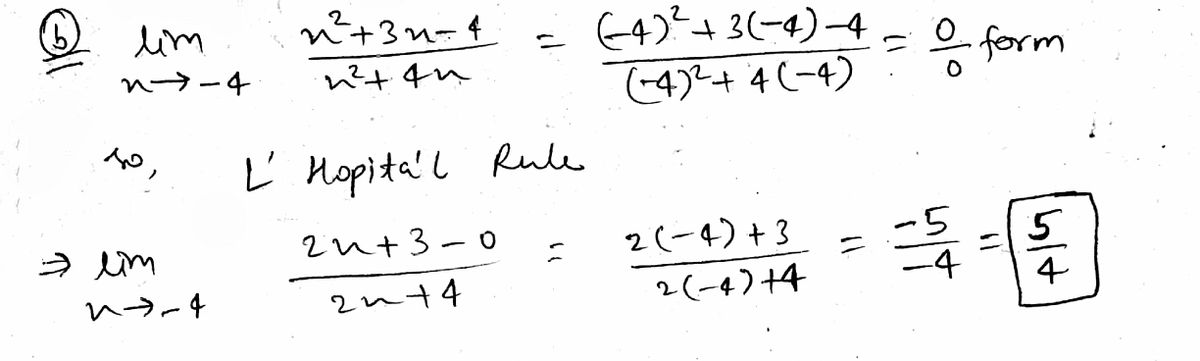 (b) lim n→-4 (n²+3n-4)/(n²+4n) = ((-4)²+3(-4)-4)/((-4)²+4(-4)) = 0/0 form
so, L' Hopita'l Rule
⇒ lim n→-4 (2n+3-0)/(2n+4) = (2(-4)+3)/(2(-4)+4) = -5/-4 = 5/4